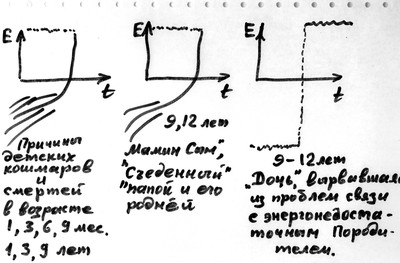 E
t
Причины
детских
кошмаров
и
смертей
в возрасте
1, 3, 6, 9 мес.
1, 3, 9 лет
E
t
9, 12 лет
Мамин Сын",
"Съеденный"
"папой и его
роднёй
E
t
9-12 лет
„Дочь," вырвавшаяся
из проблем связи
с энергонедоста-
точным Породи-
телем.